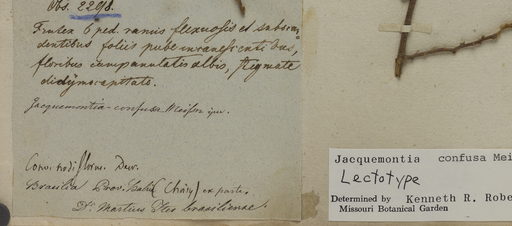 Obs. 2298.
Frutex 6 ped. ramis flexuosis et subscan
dentibus foliis pube incanescentibus,
floribus campanulatis albis, stigmate
didymocapitato.
Jacquemontia confusa Meisn
Conv. nodiflorus Desr.
Brasilia Prov. ex parte.
Dr. Martius Iter brasiliense.
Jacquemontia confusa Mei
Lectotype
Determined by Kenneth R. Robe
Missouri Botanical Garden